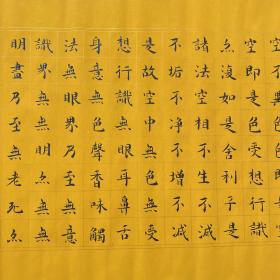 空即是色受想行識
亦復如是舍利子是
諸法空相不生不滅
不垢不淨不增不減
是故空中無色無受
想行識無眼耳鼻舌
身意無色聲香味觸
法無眼界乃至無意
識界無無明亦無無
明盡乃至無老死亦